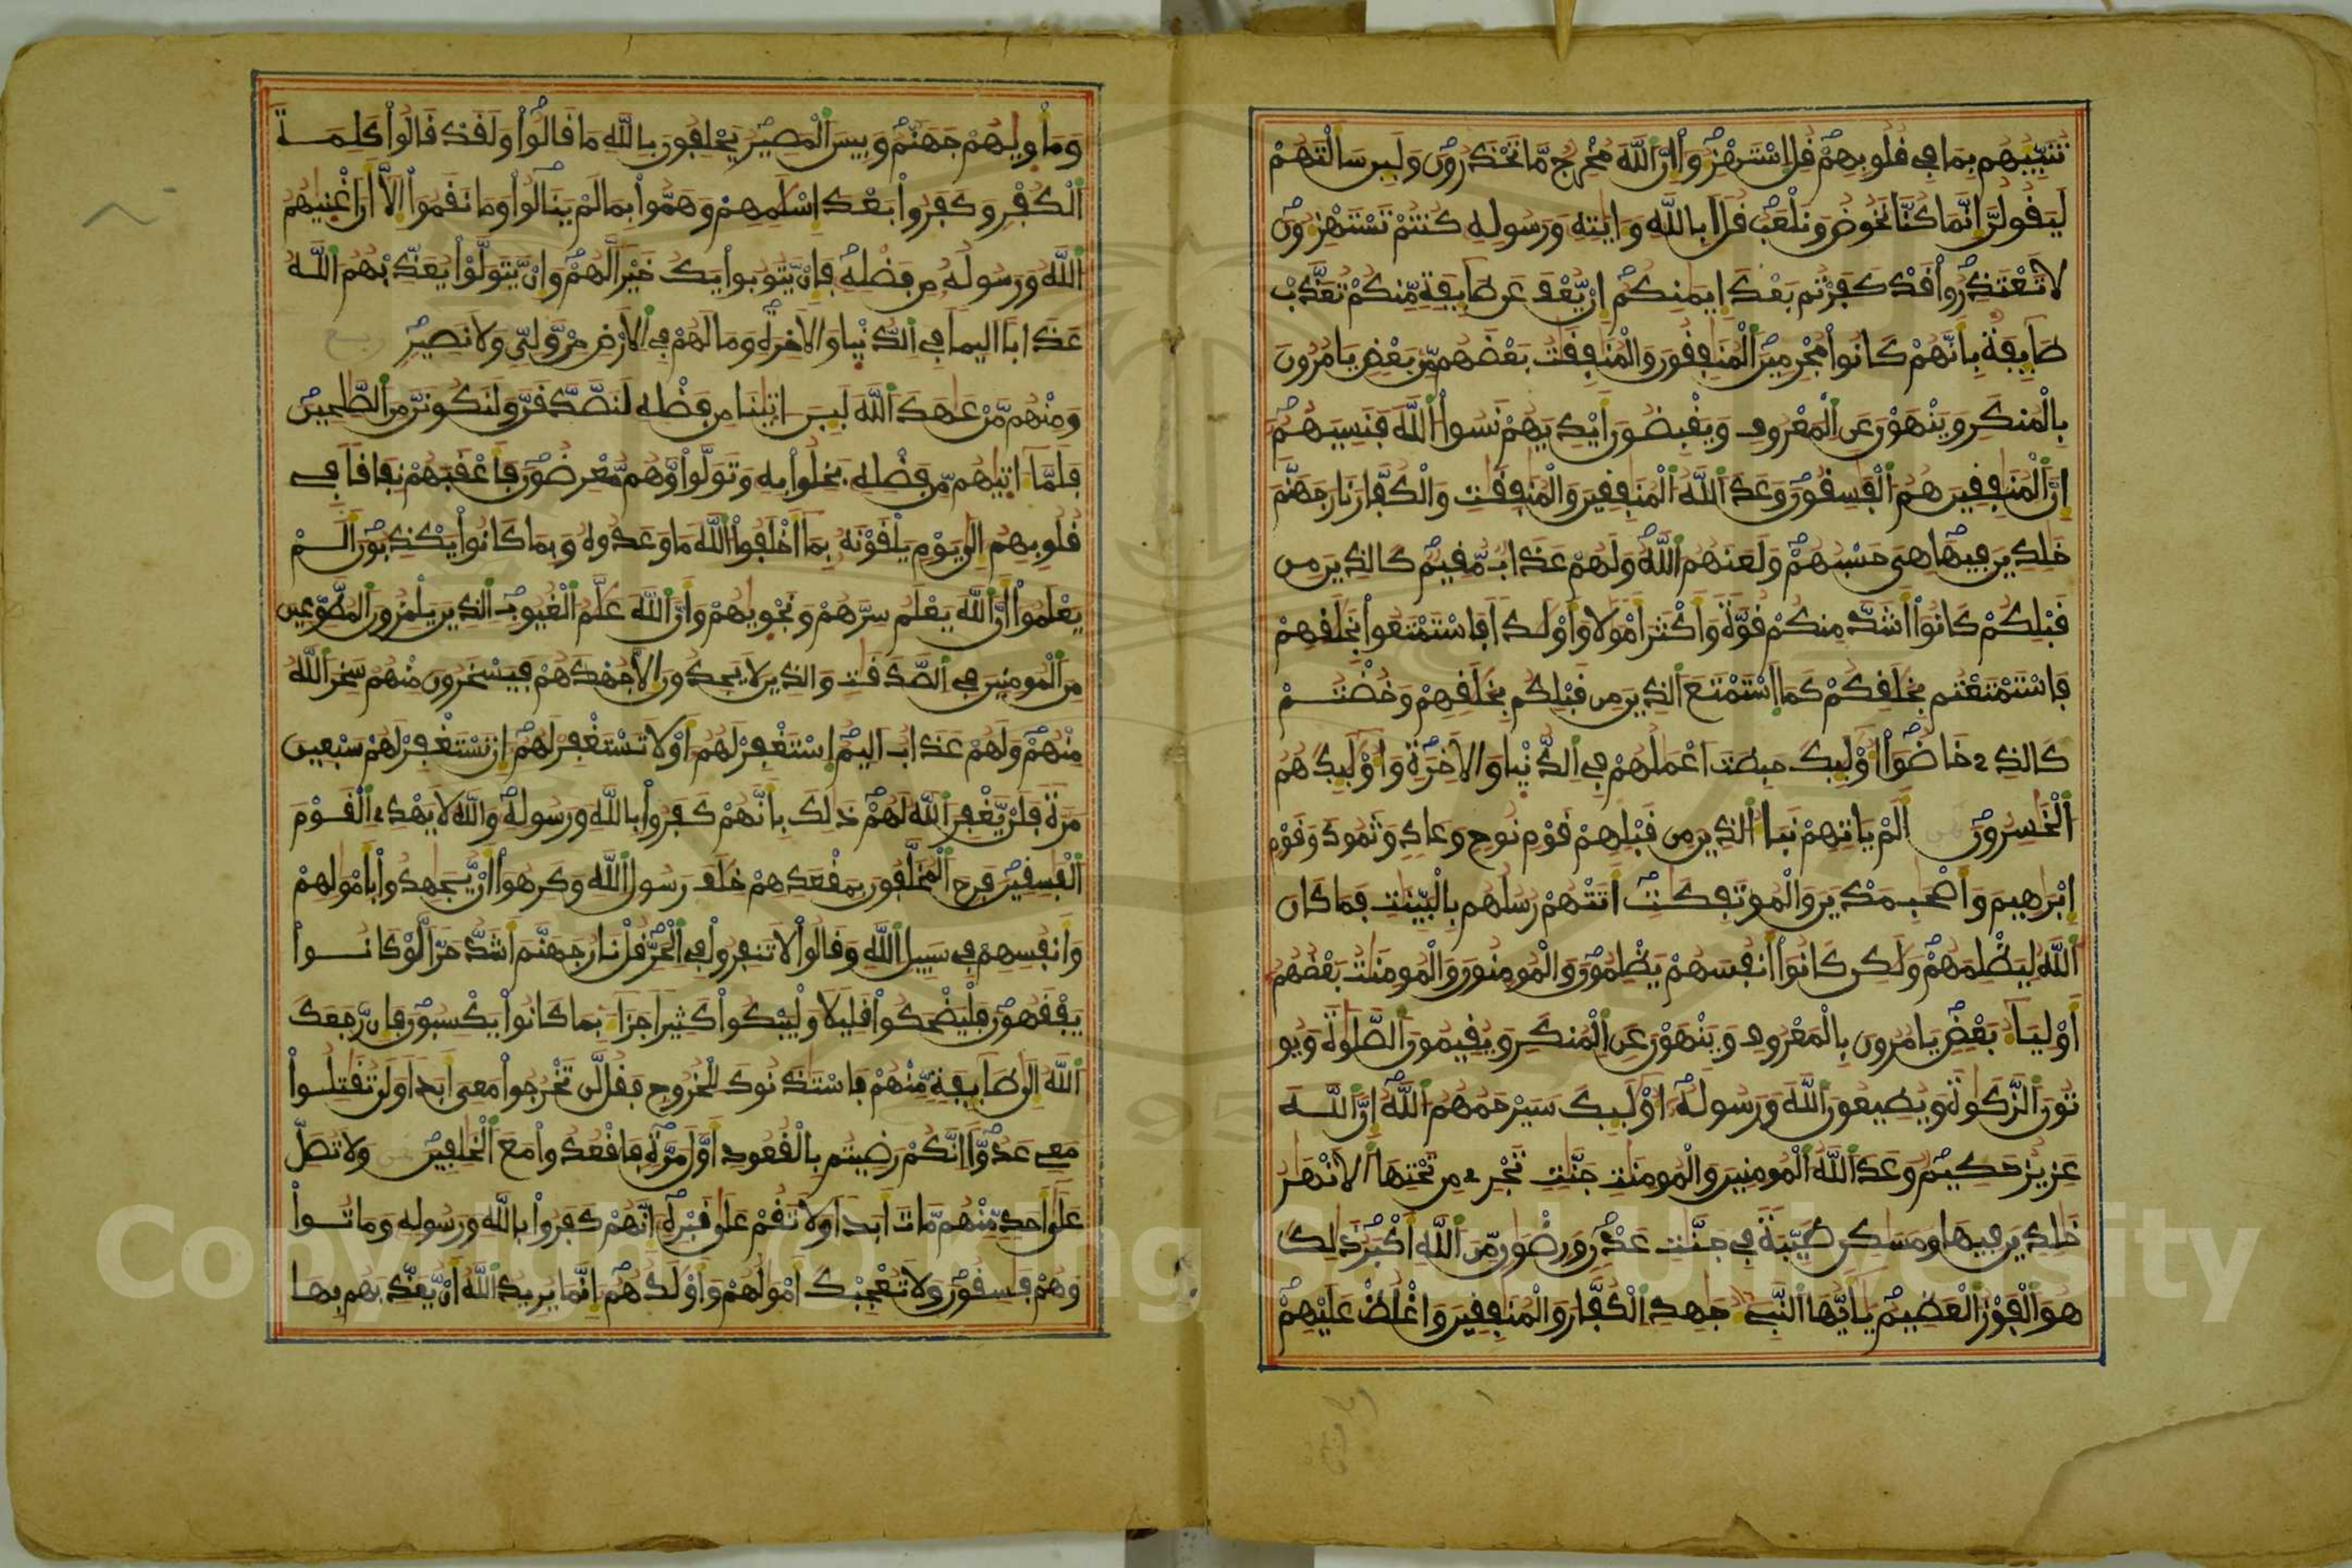 تنبيهم بما في قلوبهم قل استهزءوا ان الله مخرج ما تحذرون ولين سالتهم
ليقولن انما كنا نخوض ونلعب قل ابالله وايته ورسوله كنتم تستهزءون
لا تعتذروا قد كفرتم بعد ايمنكم ان يعف عن طايفة منكم تعذب
طايفة بانهم كانوا مجرمين المنفقون والمنفقت بعضهم من بعض يامرون
بالمنكر وينهون عن المعروف ويقبضون ايديهم نسوا الله فنسيهم
ان المنفقين هم الفسقون وعد الله المنفقين والمنفقت والكفار نار جهنم
خلدين فيها هي حسبهم ولعنهم الله ولهم عذاب مقيم كالذين من
قبلكم كانوا اشد منكم قوة واكثر امولا واولدا فاستمتعوا بخلفهم
فاستمتعتم بخلفكم كما استمتع الذين من قبلكم بخلفهم وخضتم
كالذي خاضوا اوليك حبطت اعملهم في الدنيا والاخرة واوليك هم
الخسرون الم ياتهم نبا الذين من قبلهم قوم نوح وعاد وثمود وقوم
ابرهيم واصحب مدين والموتفكت اتتهم رسلهم بالبينت فما كان
الله ليظلمهم ولكن كانوا انفسهم يظلمون والمومنون والمومنت بعضهم
اولياء بعض يامرون بالمعروف وينهون عن المنكر ويقيمون الصلوة ويو
تون الزكوة ويطيعون الله ورسوله اوليك سيرحمهم الله ان الله
عزيز حكيم وعد الله المومنين والمومنت جنت تجري من تحتها الانهر
خلدين فيها ومسكن طيبة في جنت عدن ورضون من الله اكبر ذلك
هو الفوز العظيم يايها النبيء جهد الكفار والمنفقين واغلظ عليهم
وماويهم جهنم وبيس المصير يحلفون بالله ما قالوا ولقد قالوا كلمة
الكفر وكفروا بعد اسلمهم وهموا بما لم ينالوا وما نقموا الا ان اغنيهم
الله ورسوله من فضله فان يتوبوا يك خيرا لهم وان يتولوا يعذبهم الله
عذابا اليما في الدنيا والاخرة وما لهم في الارض من ولي ولا نصير
ومنهم من عهد الله لين اتينا من فضله لنصدقن ولنكونن من الصلحين
فلما اتيهم من فضله بخلوا به وتولوا وهم معرضون فاعقبهم نفاقا في
قلوبهم الى يوم يلقونه بما اخلفوا الله ما وعدوه وبما كانوا يكذبون الم
يعلموا ان الله يعلم سرهم ونجويهم وان الله علم الغيوب الذين يلمزون المطوعين
من المومنين في الصدقت والذين لا يجدون الا جهدهم فيسخرون منهم سخر الله
منهم ولهم عذاب اليم استغفر لهم او لا تستغفر لهم ان تستغفر لهم سبعين
مرة فلن يغفر الله لهم ذلك بانهم كفروا بالله ورسوله والله لا يهدي القوم
الفسقين فرح المخلفون بمقعدهم خلف رسول الله وكرهوا ان يجهدوا بامولهم
وانفسهم في سبيل الله وقالوا لا تنفروا في الحر قل نار جهنم اشد حرا لو كانوا
يفقهون فليضحكوا قليلا وليبكوا كثيرا جزاء بما كانوا يكسبون فان رجعك
الله الى طايفة منهم فاستذنوك للخروج فقل لن تخرجوا معي ابدا ولن تقتلوا
معي عدوا انكم رضيتم بالقعود اول مرة فاقعدوا مع الخلفين ولا تصل
على احد منهم مات ابدا ولا تقم على قبره انهم كفروا بالله ورسوله وماتوا
وهم فسقون ولا تعجبك امولهم واولدهم انما يريد الله ان يعذبهم بها
Copyright © King Saud University